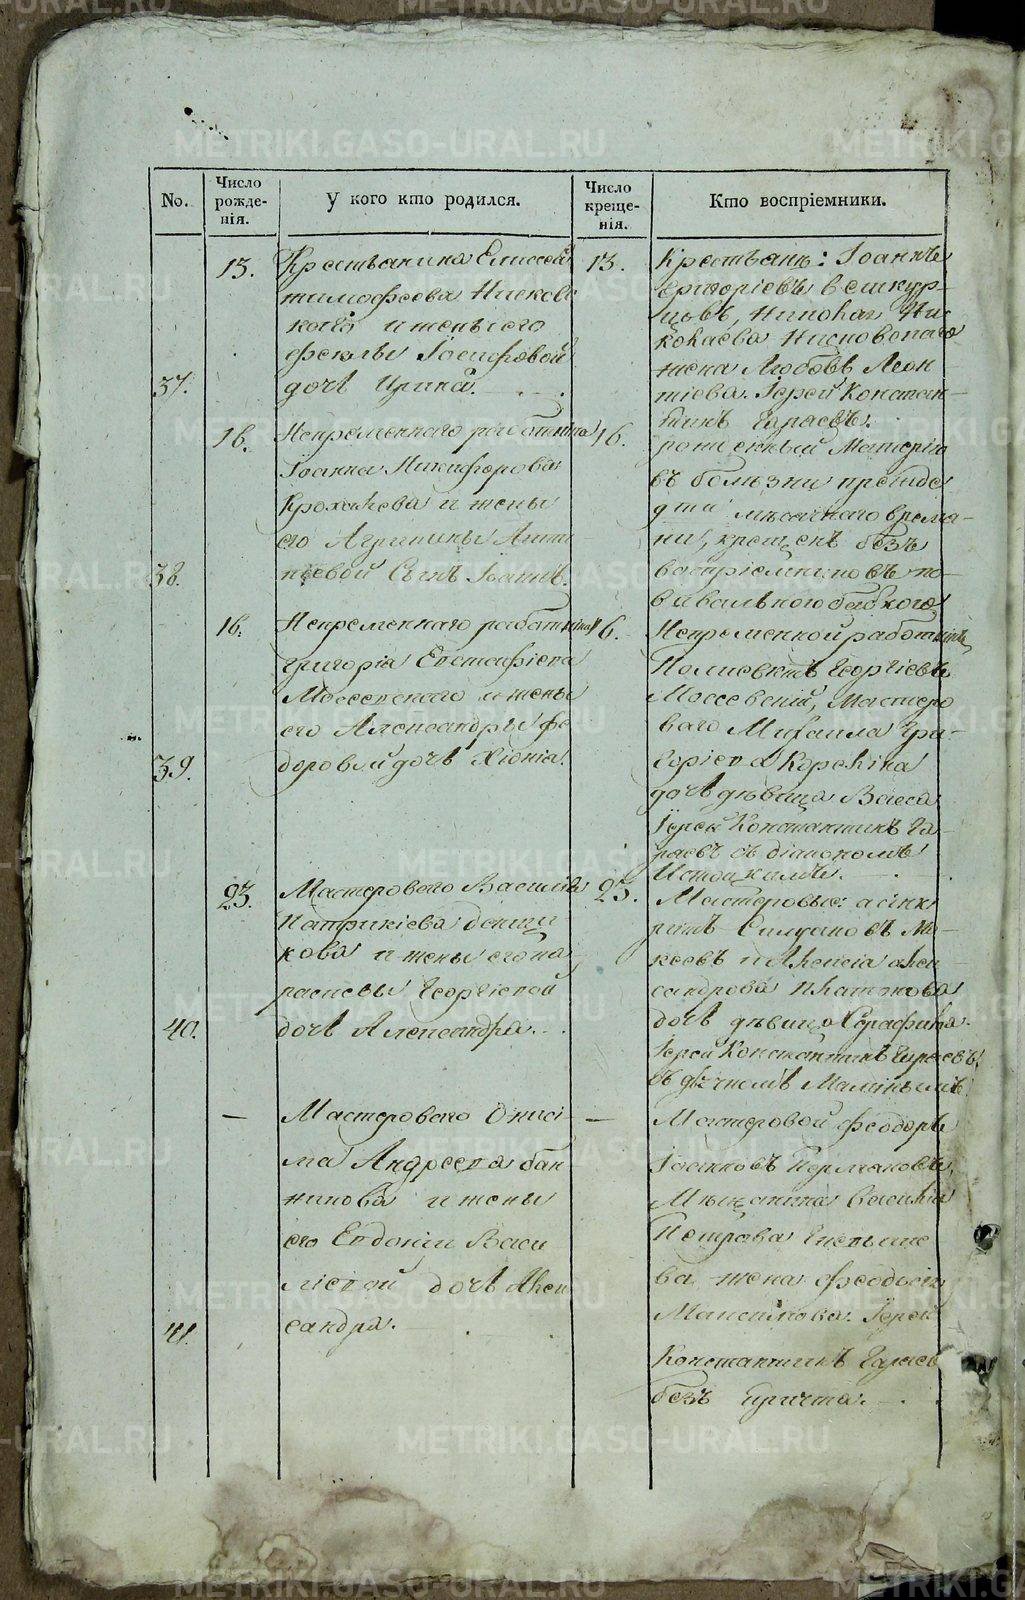 No.
Число рожденія.
У кого кто родился.
Число крещенія.
Кто воспріемники.
37.
13.
Крестьянина Елисея
тимофеева
кого и жены его
феклы Іосифовой
дочь Ирина.
13.
Крестьянъ: Іоаннъ
Григоріевъ
колаева
жена Любовь Леон
тіева. Іерей Констан–
тинъ Гараевъ.
38.
16.
Непременнаго работника
Іоанна Никифорова
Крохалева и жены
его Агрипины Анти
пьевой Сынъ Іоаннъ.
16.
въ болѣзни прежде
мѣсячнаго време–
ни, крещенъ безъ
воспріемниковъ по–
вивальною бабкою
39.
16.
Непременнаго работника
григорія Евстафіева
Моссевскаго и жены
его Александры фе
доровой дочь Хіонія.
16.
Непременной работникъ
Георгіевъ
Моссевскій, Мастеро
ваго Михаила Гри–
горіева Корекина
дочь дѣвица Васса
Іерей Константинъ Га–
раевъ съ діакономъ
40.
23.
Мастероваго Василія
Патрикіева
кова и жены его Па
расковьи Георгіевой
дочь Александра.
23.
Мастеровые: асинк
ритъ Силуановъ Мо–
кеевъ и Алексія Алек
сандрова Платонова
дочь дѣвица Серафима.
Іерей Константинъ Гараевъ
съ дьячкомъ
41.
–
МастеровагоОниси
ма Андреева бан
никова и жены
его Евдокіи Васи
ліевой дочь Алек
сандра.
–
Мастеровой Феодоръ
Іоанновъ Пермяковъ,
Мѣщанина Василія
Петрова
ва жена Феодосія
Максимова. Іерей
Константинъ Гараевъ
безъ причта.
METRIKI.GASO-URAL.RU